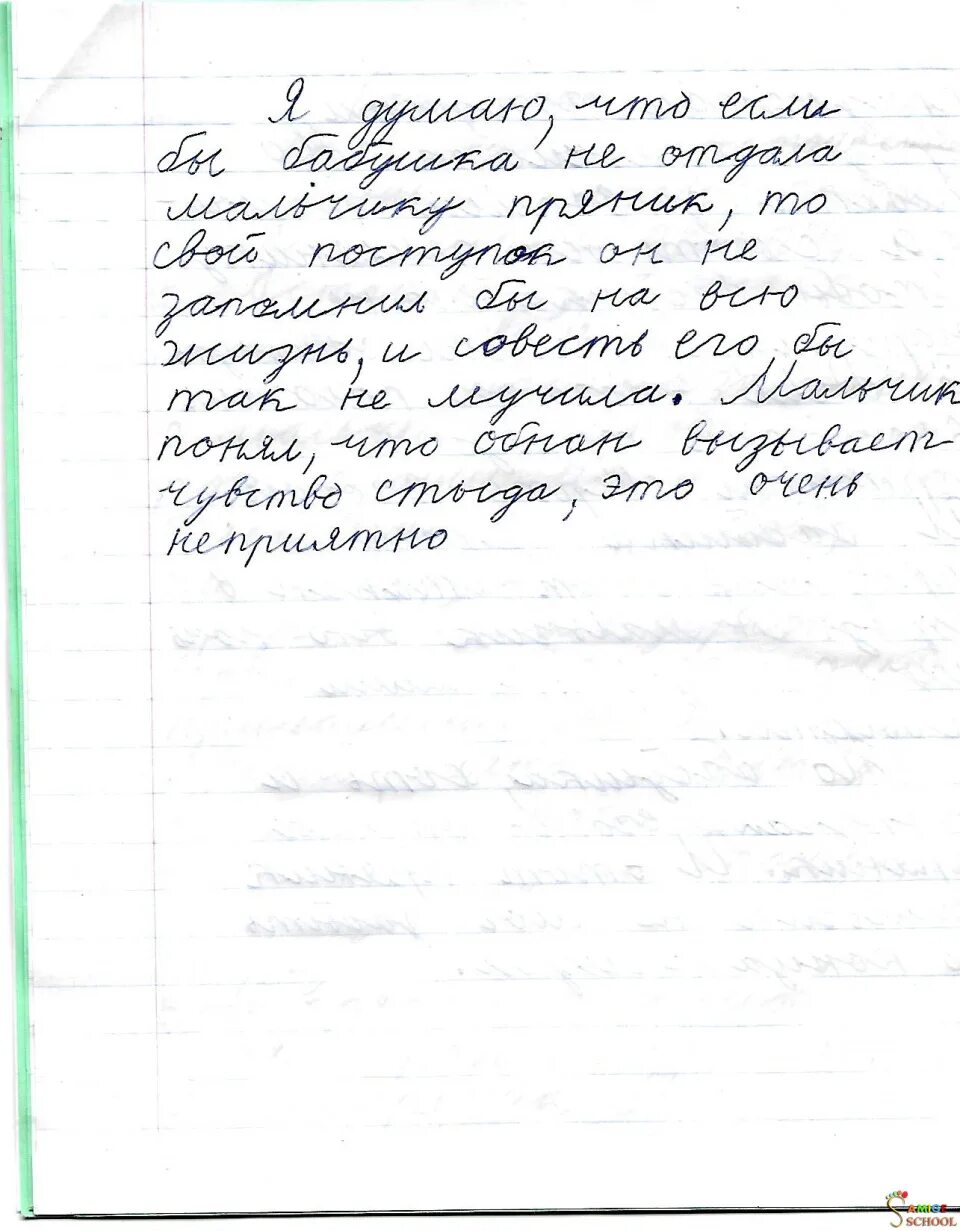 Я думаю, что если
бы бабушка не отдала
мальчику пряник, то
свой поступок он не
запомнил бы на всю
жизнь, и совесть его бы
так не мучила. Мальчик
понял, что обнан вызывает
чувство стыда, это очень
неприятно
AMIGE
SCHOOL